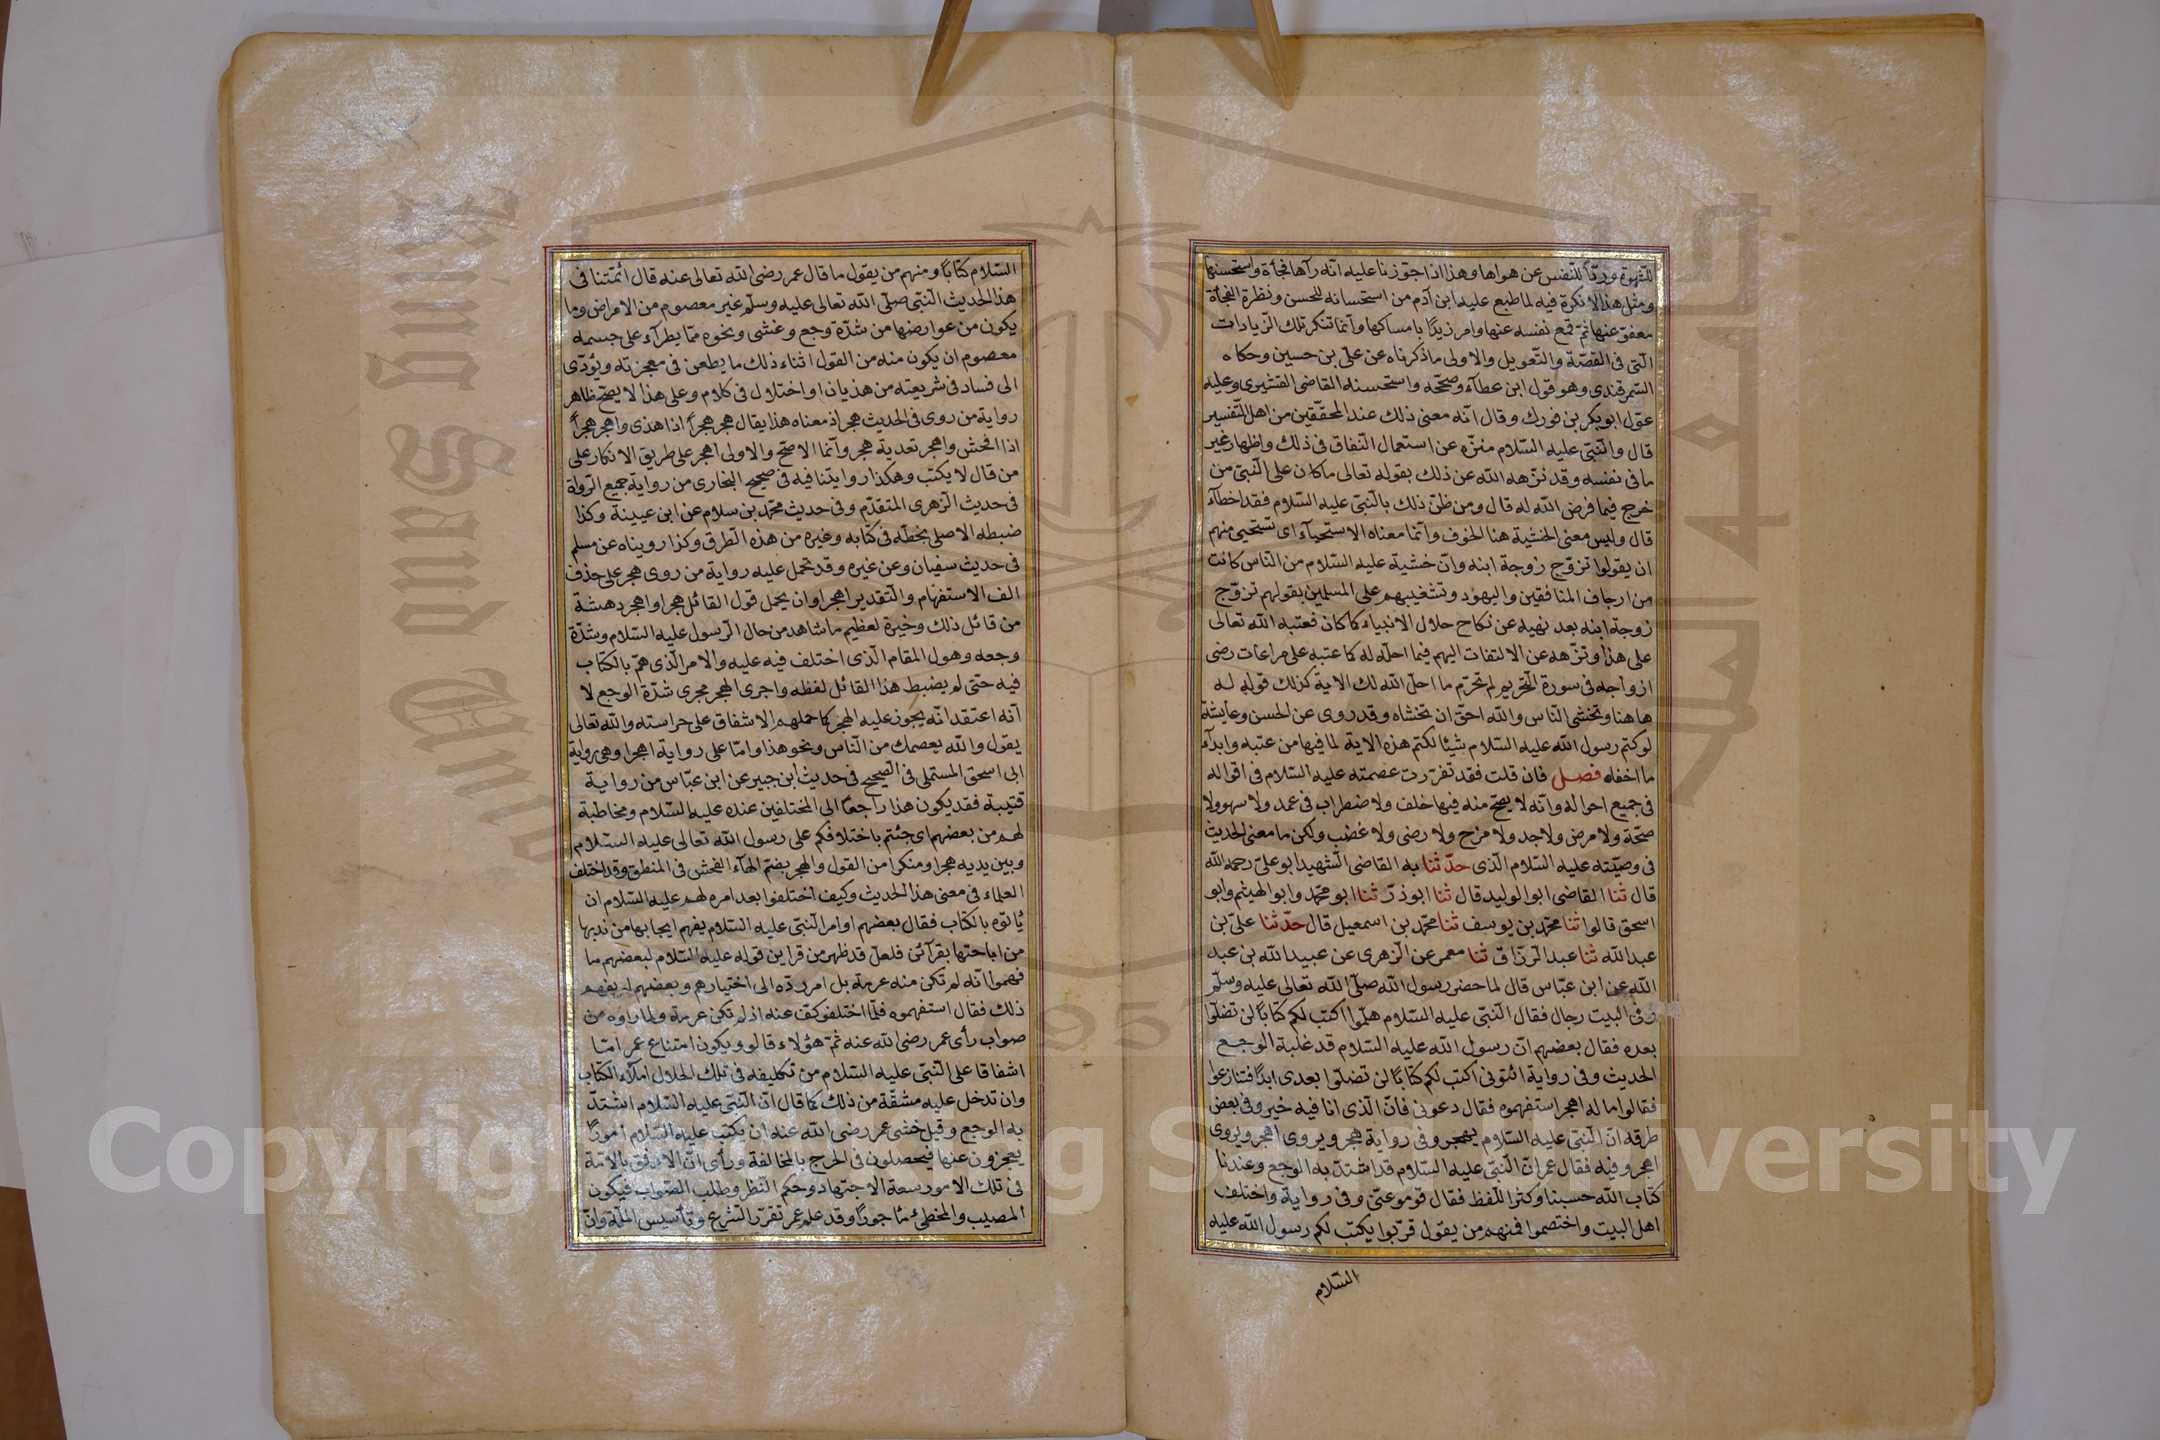 للشهوة وردّا للنفس عن هواها وهذا اذا جوّزنا عليه انّه رآها فجأة واستحسنها
ومثل هذا لا نكرة فيه لما طبع عليه ابن آدم من استحسانه للحسن ونظرة الفجأة
معفوّ عنها ثمّ قمع نفسه عنها وامر زيدًا بامساكها وانّما تنكر تلك الزيادات
الّتى فى القصّة والتّعويل والاولى ما ذكرناه عن علىّ بن حسين وحكاه
السّمرقندى وهو قول ابن عطآء وصحّحه واستحسنه القاضى القشيرى وعليه
عوّل ابو بكر بن فورك وقال انّه معنى ذلك عند المحقّقين من اهل التّفسير
قال والنّبىّ عليه السّلام منزّه عن استعمال النّفاق فى ذلك واظهار غير
ما فى نفسه وقد نزّهه الله عن ذلك بقوله تعالى ما كان على النّبىّ من
حرج فيما فرض الله له قال ومن ظنّ ذلك بالنّبىّ عليه السّلام فقد اخطآء
قال وليس معنى الخشية هنا الخوف وانّما معناه الاستحيآء اى تستحيى منهم
ان يقولوا تزوّج زوجة ابنه وانّ خشيته عليه السّلام من النّاس كانت
من ارجاف المنافقين واليهود وتشغيبهم على المسلمين بقولهم تزوّج
زوجة ابنه بعد نهيه عن نكاح حلائل الابنياء كما كان فعتبه الله تعالى
على هذا ونزّهه عن الالتفات اليهم فيما احلّه له كما عتبه على مراعات رضى
ازواجه فى سورة التّحريم لم تحرّم ما احلّ الله لك الاية كذلك قوله له
هاهنا وتخشى النّاس والله احقّ ان تخشاه وقد روى عن الحسن وعايشة
لو كتم رسول الله عليه السّلام شيئا لكتم هذه الاية لما فيها من عتبه وابدآء
ما اخفاه فصل فان قلت فقد تقرّرت عصمته عليه السّلام فى اقواله
فى جميع احواله وانّه لا يصحّ منه فيها خلف ولا ضطراب فى عمد ولا سهو ولا
صحّة ولا مرض ولا جد ولا مزح ولا رضى ولا غضب ولكن ما معنى الحديث
فى وصيّته عليه السّلام الّذى حدّثنا به القاضى الشّهيد ابو علىّ رحمه الله
قال ثنا القاضى ابو الوليد قال ثنا ابوذرّ ثنا ابو محمّد وابو الهيثم وابو
اسحق قالوا ثنا محمّد بن يوسف ثنا محمّد بن اسمعيل قال حدّثنا علىّ بن
عبد الله ثنا عبد الرّزاق ثنا معمر عن الزّهرى عن عبيد الله بن عبد
الله عن ابن عبّاس قال لما حضر رسول الله صلّى الله تعالى عليه وسلّم
وفى البيت رجال فقال النّبىّ عليه السّلام هلمّوا اكتب لكم كتابًا لن تضلّوا
بعده فقال بعضهم انّ رسول الله عليه السّلام قد غلبة الوجع
الحديث وفى رواية ائتونى اكتب لكم كتابًا لن تضلّوا بعدى ابدًا فتنازعوا
فقالوا ما له اهجر استفهموه فقال دعونى فانّ الّذى انا فيه خير وفى بعض
طرقه انّ النّبىّ عليه السّلام يهجر وفى رواية هجر ويروى اهجر ويروى
اهجر وفيه فقال عمر انّ النّبىّ عليه السّلام قد اشتدّ به الوجع وعندنا
كتاب الله حسبنا وكثر اللّفظ فقال قوموعنّى وفى رواية واختلف
اهل البيت واختصموا فمنهم من يقول قرّبوا يكتب لكم رسول الله عليه
السّلام
السّلام كتابًا ومنهم من يقول ما قال عمر رضى الله تعالى عنه قال ائمّتنا فى
هذا الحديث النّبىّ صلّى الله تعالى عليه وسلّم غير معصوم من الامراض وما
يكون من عوارضها من شدّة وجع وغشى ونحوه ممّا يطرآء على جسمه
معصوم ان يكون منه من القول اثناء ذلك ما يطعن فى معجزته ويؤدّى
الى فساد فى شريعته من هذيان او اختلال فى كلام وعلى هذا لا يصحّ ظاهر
رواية من روى فى الحديث هجر اذ معناه هذا يقال هجر هجرًا اذا هذى واهجر هجرًا
اذا افحش واهجر تعدية هجر وانّما الاصحّ والاولى اهجر على طريق الانكار على
من قال لا يكتب وهكذا روايتنا فيه فى صحيح البخارى من رواية جميع الرّواة
فى حديث الزّهرى المتقدّم وفى حديث محمّد بن سلام عن ابن عيينة وكذا
ضبطه الاصلى بخطّه فى كتابه وغيره من هذه الطّرق وكذا رويناه عن مسلم
فى حديث سفيان وعن غيره وقد تحمل عليه رواية من روى هجر على حذف
الف الاستفهام والتّقدير اهجر او ان يحمل قول القائل هجر او اهجر دهشة
من قائل ذلك وخيرة لعظيم ما شاهد من حال الرّسول عليه السّلام وشدّة
وجعه وهول المقام الّذى اختلف فيه عليه والامر الّذى همّ بالكتاب
فيه حتى لم يضبط هذا القائل لفظه واجرى الهجر مجرى شدّة الوجع لا
انه اعتقد انّه يجوز عليه الهجر كما حملهم الاشفاق على حراسته والله تعالى
يقول والله يعصمك من النّاس ونحو هذا وامّا على رواية اهجرا وهى رواية
ابى اسحق المستملى فى الصحيح فى حديث ابن جبير عن ابن عبّاس من رواية
قتيبة فقد يكون هذا راجعًا الى المختلفين عنده عليه السّلام ومخاطبة
لهم من بعضهم اى جئتم باختلافكم على رسول الله تعالى عليه السّلام
وبين يديه هجرا ومنكرا من القول والهجر بضم الهآء الفحش فى المنطق وقد اختلف
العلماء فى معنى هذا الحديث وكيف اختلفوا بعد امره لهم عليه السّلام ان
يأتوّه بالكتاب فقال بعضهم اوامر النّبىّ عليه السّلام يفهم ايجابها من ندبها
من اباحتها بقرآئن فلعلّ قد ظهر من قراين قوله عليه السّلام لبعضهم ما
فهموا انّه لم تكن منه عزمة بل امر ردّه الى اختيارهم وبعضهم لم يفهم
ذلك فقال استفهموه فلمّا اختلفو كفّ عنه اذ لم تكن عزمة ولما راوه من
صواب رأى عمر رضى الله عنه ثمّ هؤلاء قالو ويكون امتناع عمر امّا
اشفاقا على النّبىّ عليه السّلام من تكليفه فى تلك الحلال املآء الكتاب
وان تدخل عليه مشقّة من ذلك كما قال انّ النّبىّ عليه السّلام اشتدّ
به الوجع وقيل خشى عمر رضى الله عنه ان يكتب عليه السّلام امورًا
يعجزون عنها فيحصلون فى الحرج بالمخالفة ورأى انّ الارفق بالامّة
فى تلك الامور سعة الاجتهاد وحكم النّظر وطلب الصّواب فيكون
المصيب والمخطئ مأجورًا وقد علم عمر تقرّر الشّرع وتأسيس الملّة وانّ